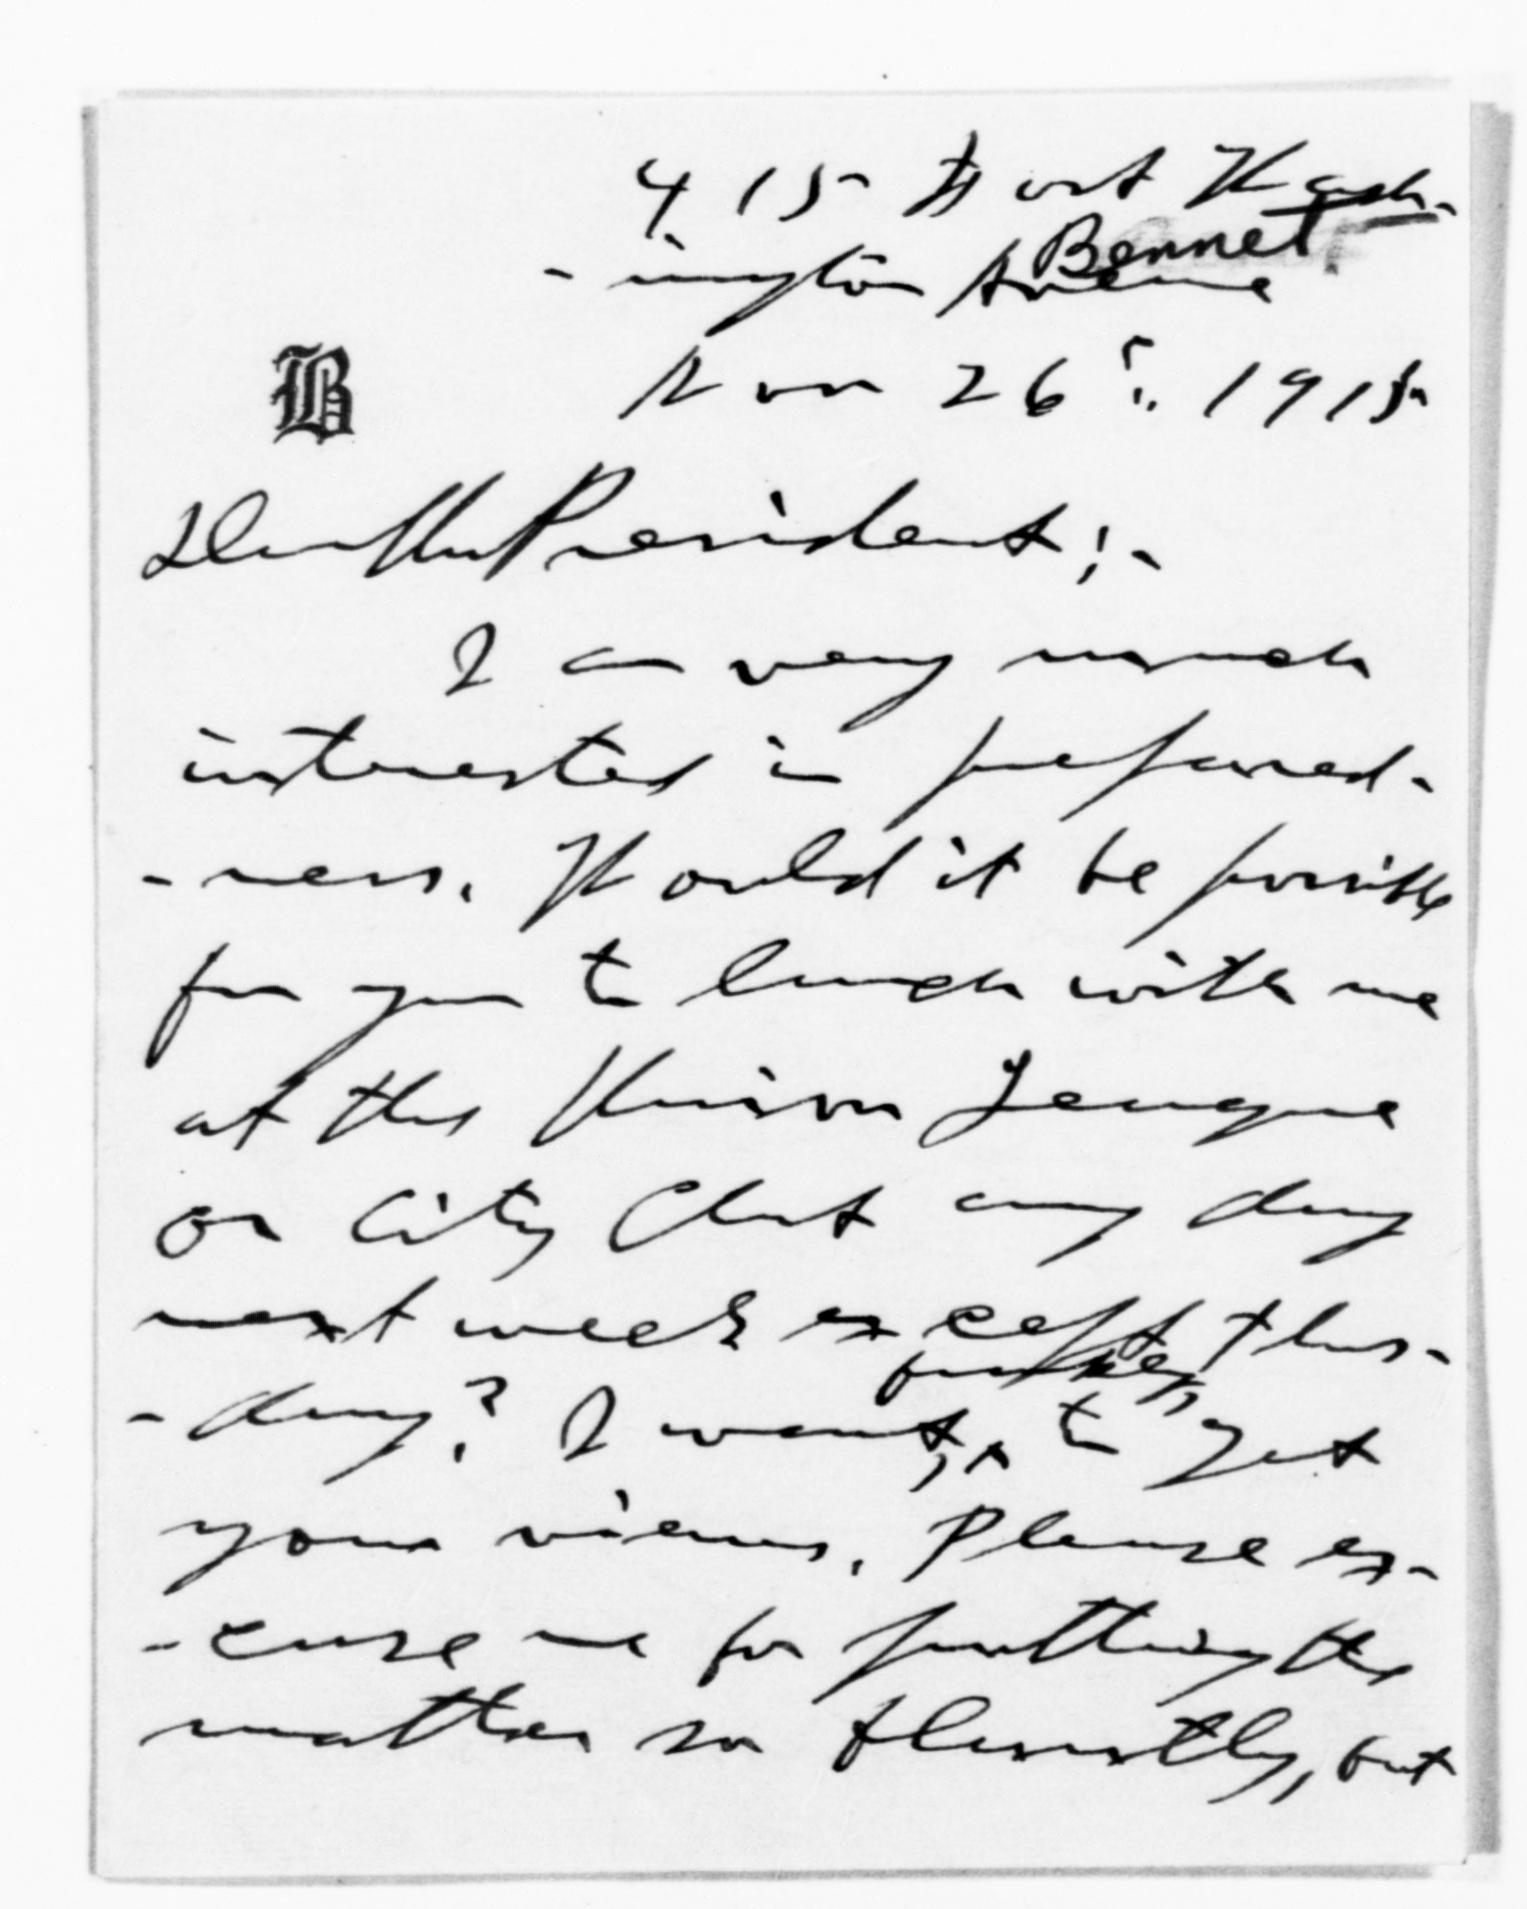 415 Fort Wash-
Bennet
-ington Avenue
B
Nov 26th. 1915
Dear Mr President;-
I am very much
interested in prepared-
-ness. Would it be possible
for you to lunch with me
at the Union League
or City Club any day
next week except Thurs-
-day? I want, to get
your views. Please ex-
-cuse me for putting the
matter so bluntly, but